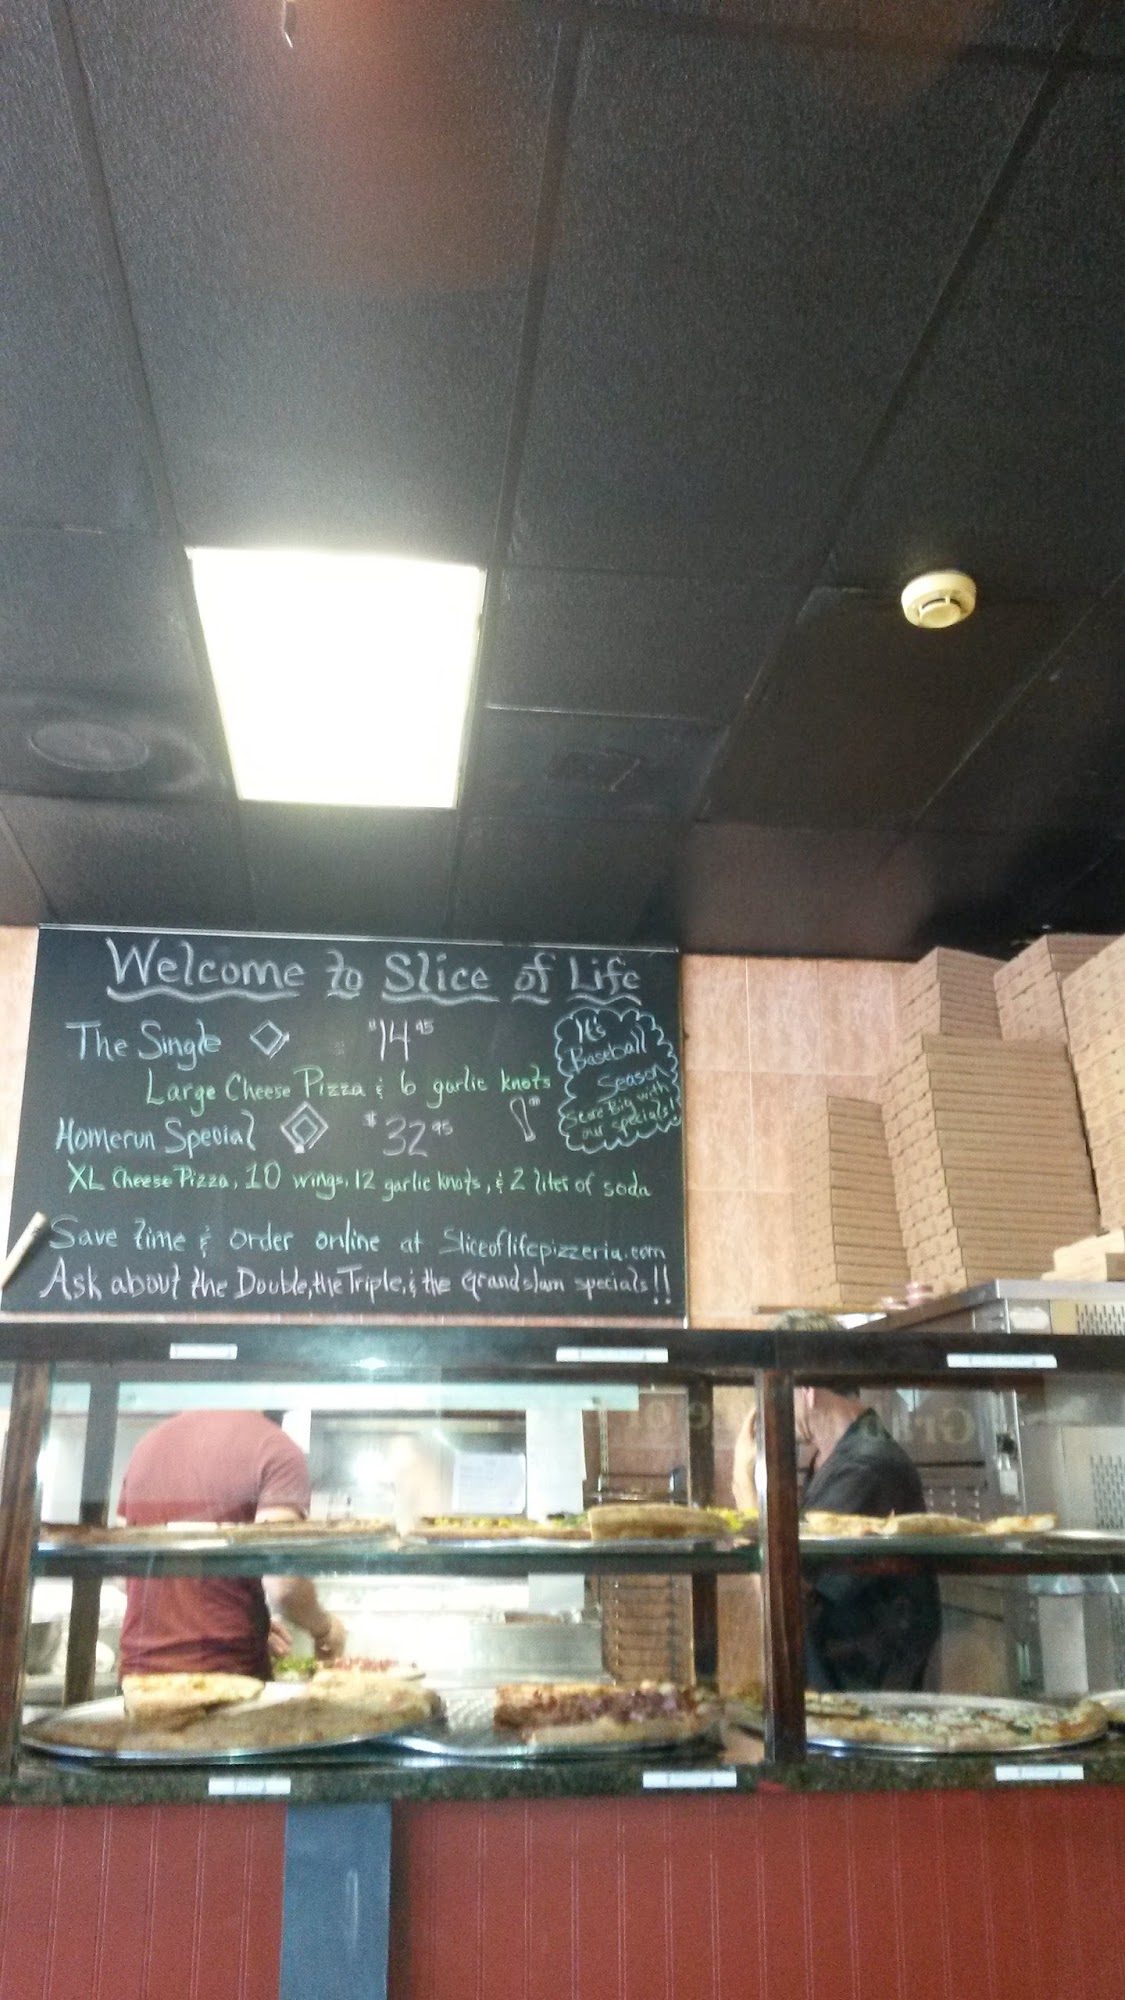 Welcome to Slice of Life
The Single $14.95
Large Cheese Pizza & 6 garlic knots
Homerun Special $32.95
XL Cheese Pizza, 10 wings, 12 garlic knots, & 2 liter of soda
Save time & order online at Sliceoflifepizzeria.com
Ask about the Double, the Triple, & the grandslam specials!!
It's
Baseball
Season
Score Big with
our specials!